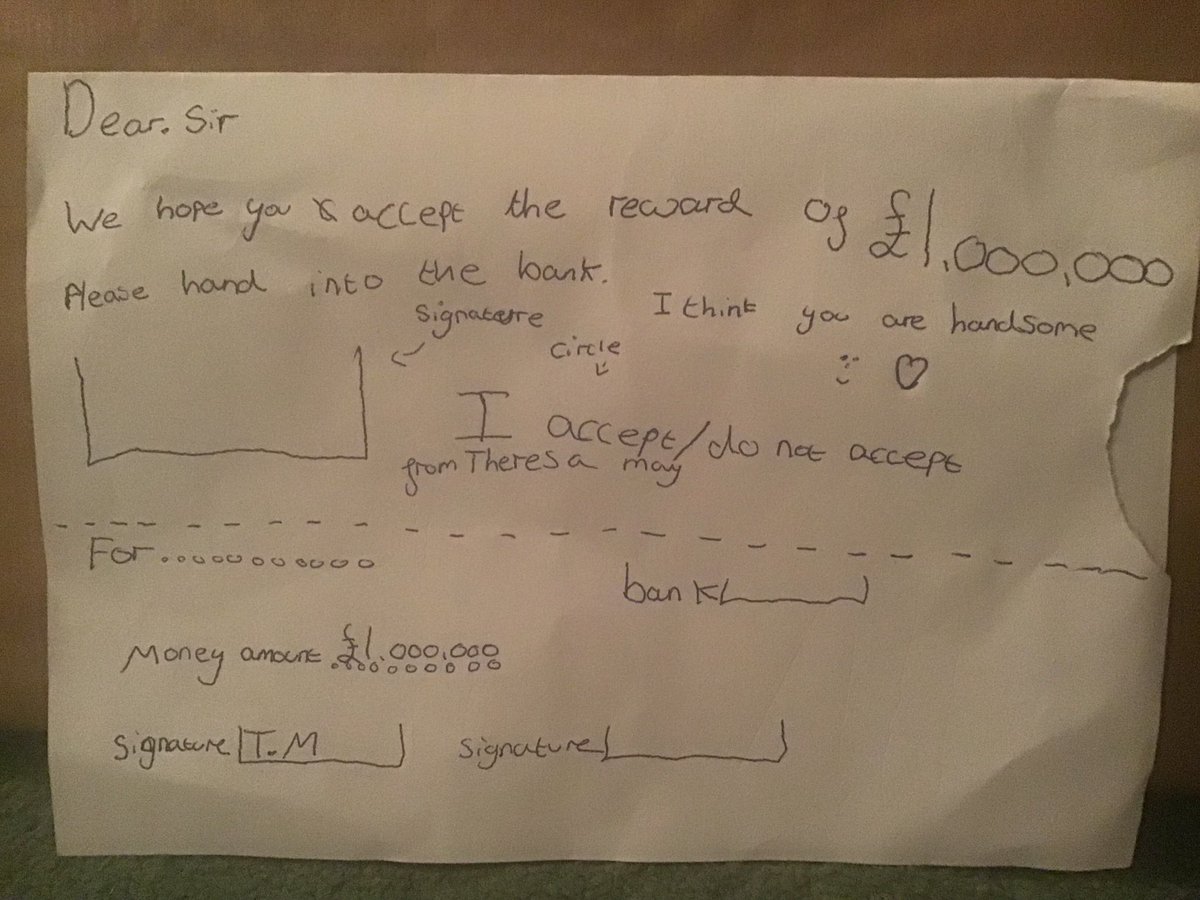 Dear. Sir
We hope you accept the reward of £1,000,000
Please hand into the bank.
signaterre
I think you are handsome
circle
I accept/do not accept
from Theresa may
For...........
bank
Money amount £1,000,000
signature T.M signature